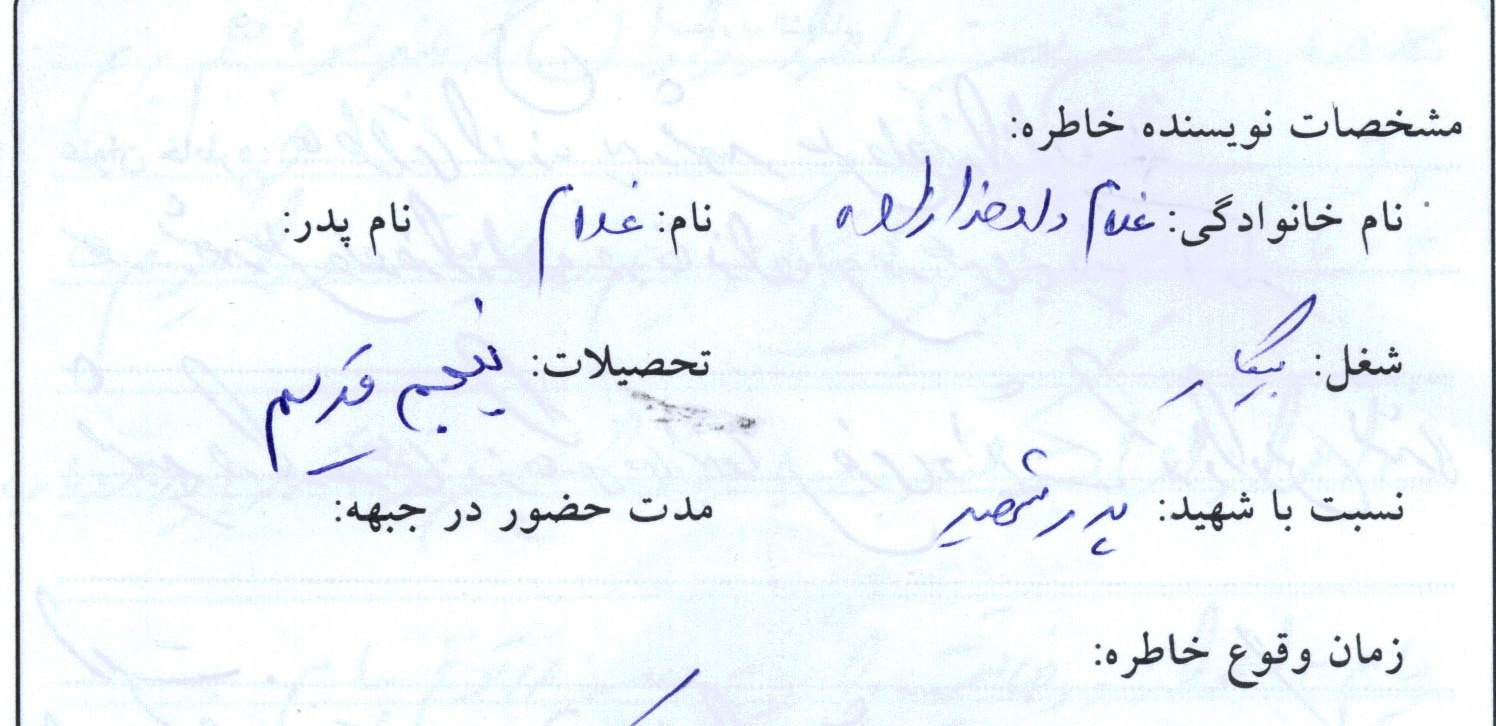 مشخصات نویسنده خاطره:
نام خانوادگی: غلام نام: غلام نام پدر:
شغل: بیکار تحصیلات: پنجم قدیم
نسبت با شهید: پدر شهید مدت حضور در جبهه:
زمان وقوع خاطره: